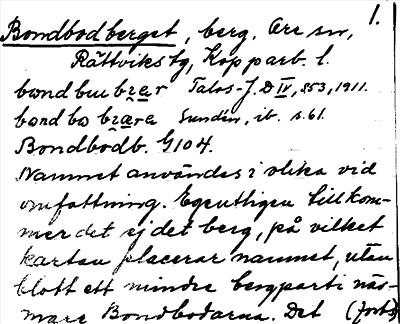 1.
Bondbodberget, berg. Ore sn,
Rättviks tg, Kopparb. l.
bondbu bzær Talos-J. D IV, 553, 1911.
bondbo bzæra Sundén, ib. s. 61.
Bondbodb. G104.
Namnet användes i olika vid
omfattning. Egentligen tillkom-
mer det ej det berg, på vilket
kartan placerar namnet, utan
blott ett mindre bergparti när-
mare Bondbodarna. Det (forts)